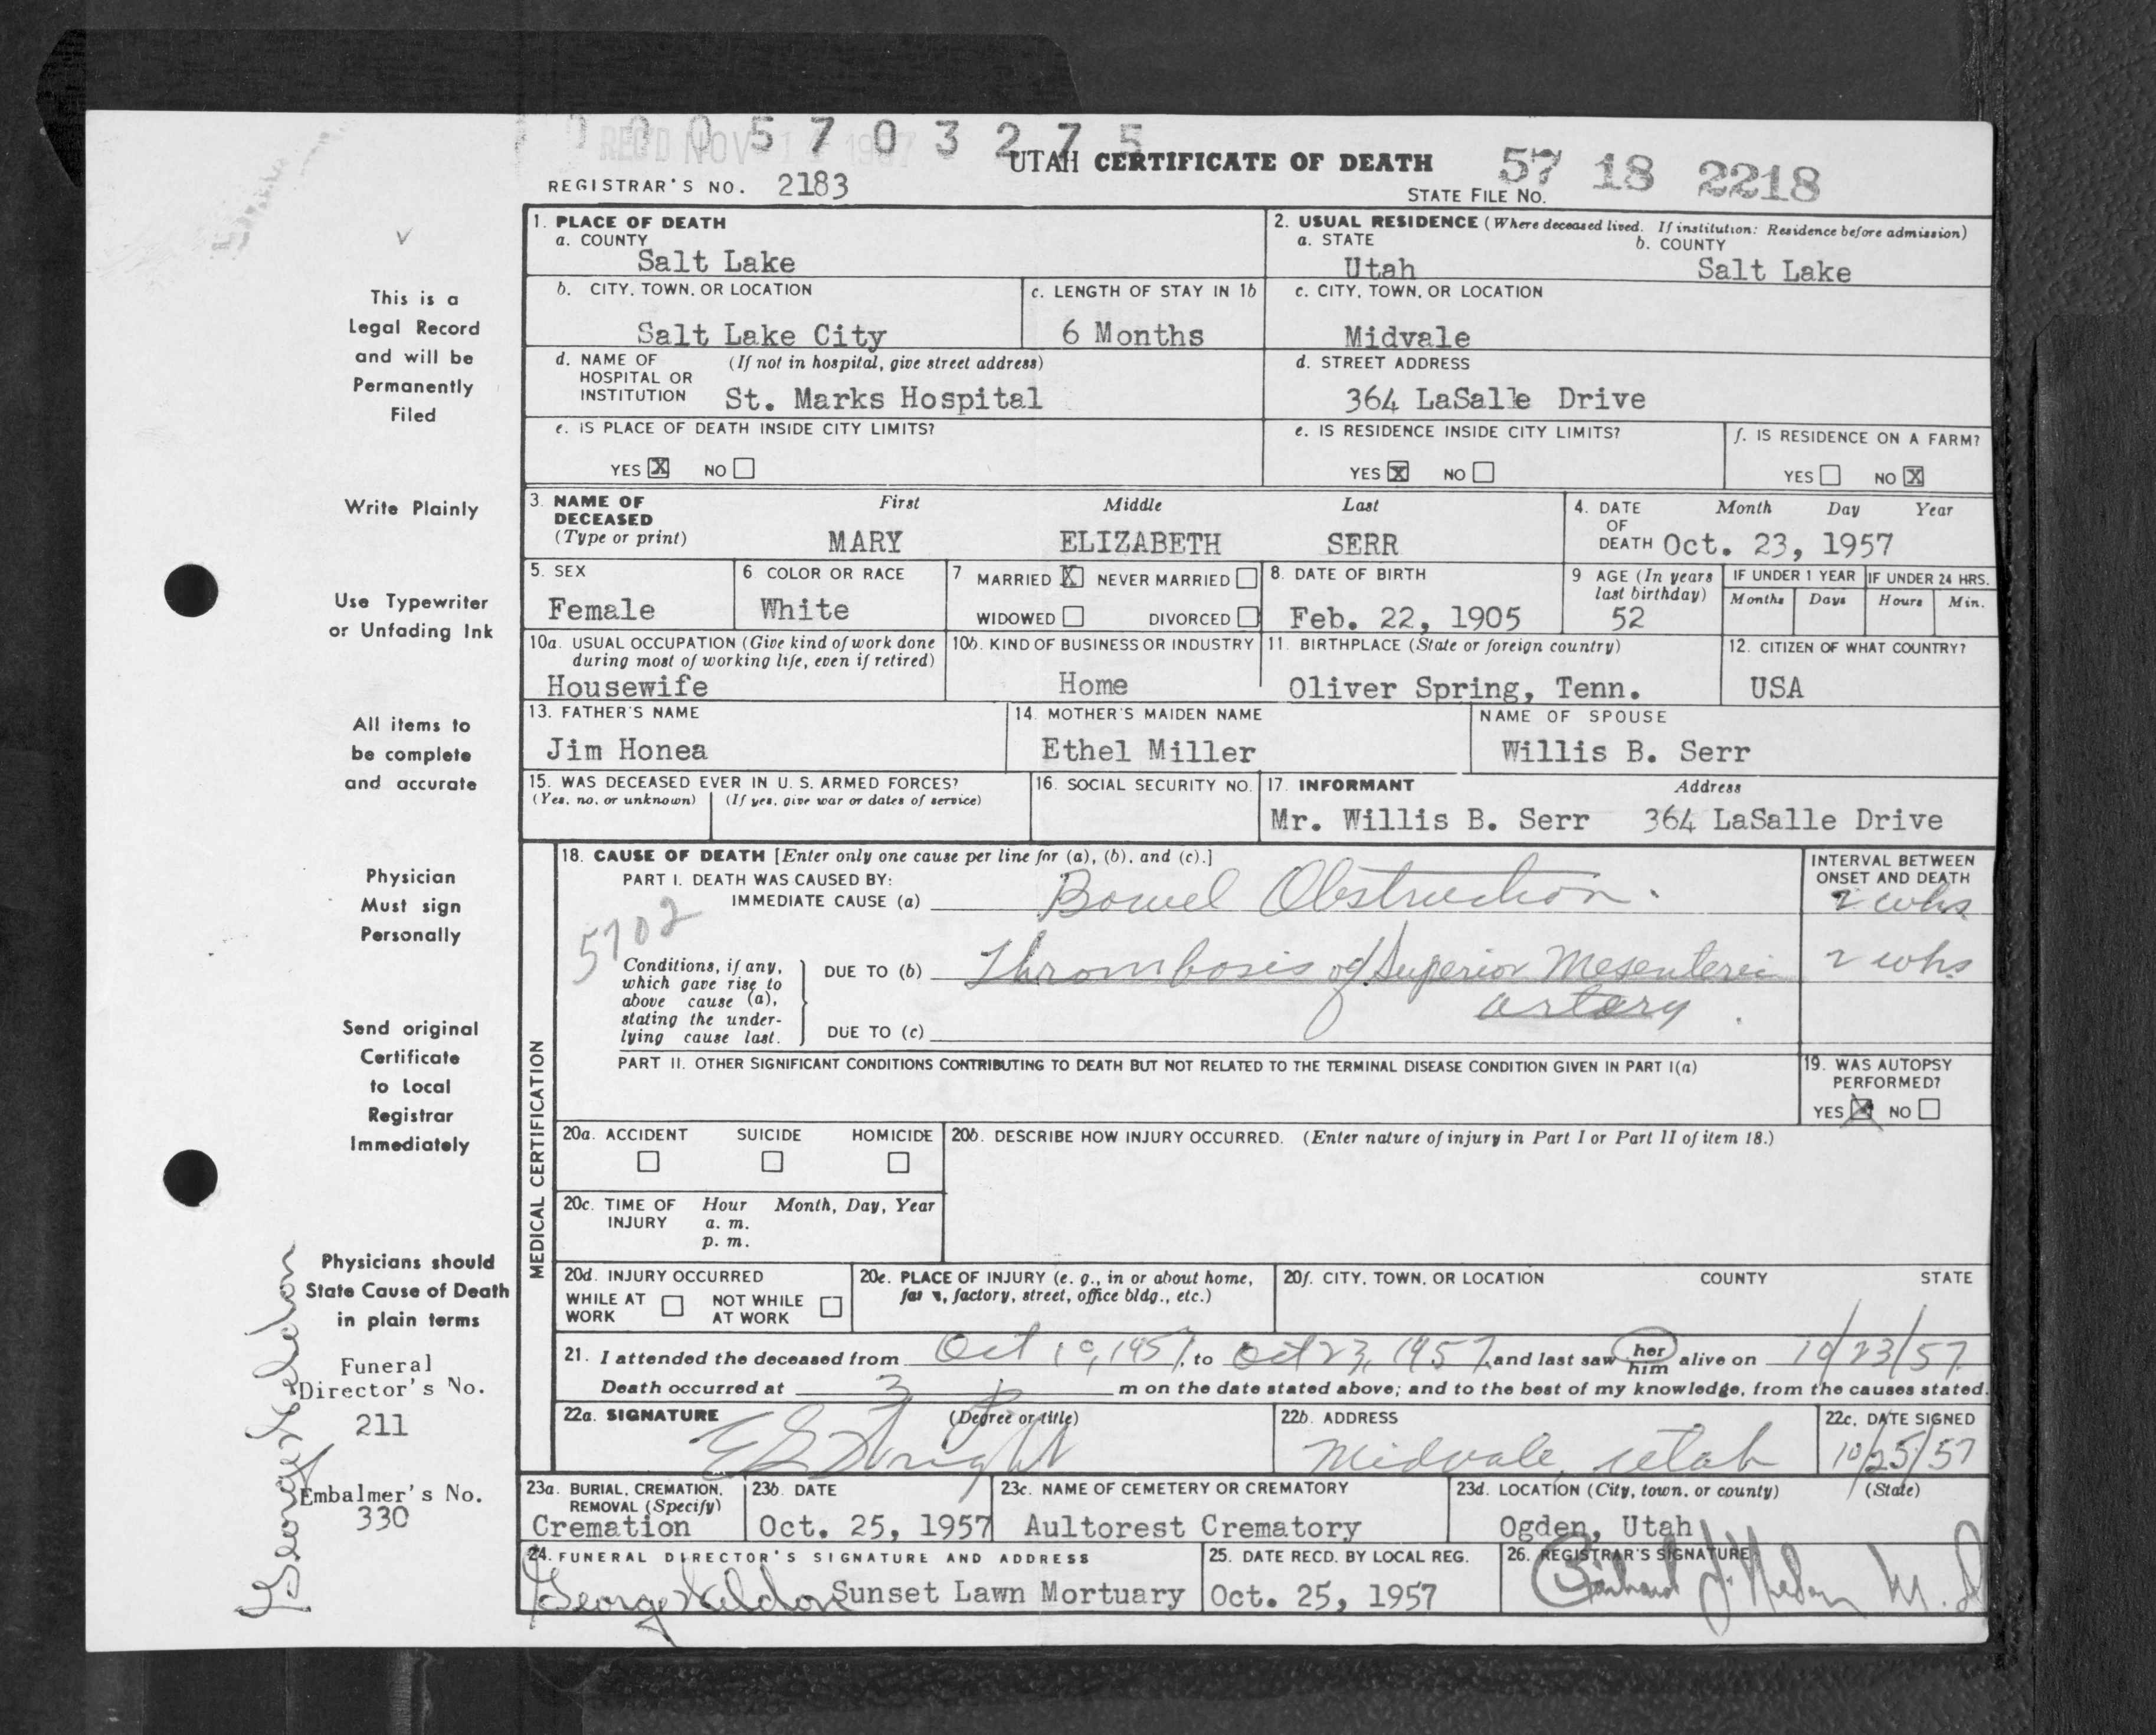 0 0 0 5 7 0 3 2 7 5
REC'D NOV 1957
UTAH CERTIFICATE OF DEATH
57 18 2218
REGISTRAR'S NO. 2183
STATE FILE NO.
1. PLACE OF DEATH
a. COUNTY
Salt Lake
2. USUAL RESIDENCE (Where deceased lived. If institution: Residence before admission)
a. STATE b. COUNTY
Utah Salt Lake
b. CITY, TOWN, OR LOCATION
Salt Lake City
c. LENGTH OF STAY IN 1b
6 Months
c. CITY, TOWN, OR LOCATION
Midvale
d. NAME OF (If not in hospital, give street address)
HOSPITAL OR
INSTITUTION St. Marks Hospital
d. STREET ADDRESS
364 LaSalle Drive
e. IS PLACE OF DEATH INSIDE CITY LIMITS?
YES X NO
e. IS RESIDENCE INSIDE CITY LIMITS?
YES X NO
f. IS RESIDENCE ON A FARM?
YES NO X
3. NAME OF First Middle Last
DECEASED
(Type or print) MARY ELIZABETH SERR
4. DATE Month Day Year
OF
DEATH Oct. 23, 1957
5. SEX
Female
6 COLOR OR RACE
White
7 MARRIED X NEVER MARRIED
WIDOWED DIVORCED
8. DATE OF BIRTH
Feb. 22, 1905
9 AGE (In years
last birthday)
52
IF UNDER 1 YEAR
Months Days
IF UNDER 24 HRS.
Hours Min.
10a. USUAL OCCUPATION (Give kind of work done
during most of working life, even if retired)
Housewife
10b. KIND OF BUSINESS OR INDUSTRY
Home
11. BIRTHPLACE (State or foreign country)
Oliver Spring, Tenn.
12. CITIZEN OF WHAT COUNTRY?
USA
13. FATHER'S NAME
Jim Honea
14. MOTHER'S MAIDEN NAME
Ethel Miller
NAME OF SPOUSE
Willis B. Serr
15. WAS DECEASED EVER IN U. S. ARMED FORCES?
(Yes, no, or unknown) (If yes, give war or dates of service)
16. SOCIAL SECURITY NO.
17. INFORMANT Address
Mr. Willis B. Serr 364 LaSalle Drive
MEDICAL CERTIFICATION
18. CAUSE OF DEATH [Enter only one cause per line for (a), (b), and (c).]
PART I. DEATH WAS CAUSED BY:
IMMEDIATE CAUSE (a) Bowel Obstruction.
INTERVAL BETWEEN
ONSET AND DEATH
2 wks
5702
Conditions, if any,
which gave rise to
above cause (a),
stating the under-
lying cause last.
DUE TO (b) Thrombosis of Superior Mesenteric
artery.
2 wks
DUE TO (c)
PART II. OTHER SIGNIFICANT CONDITIONS CONTRIBUTING TO DEATH BUT NOT RELATED TO THE TERMINAL DISEASE CONDITION GIVEN IN PART I(a)
19. WAS AUTOPSY
PERFORMED?
YES X NO
20a. ACCIDENT SUICIDE HOMICIDE
20b. DESCRIBE HOW INJURY OCCURRED. (Enter nature of injury in Part I or Part II of item 18.)
20c. TIME OF Hour Month, Day, Year
INJURY a. m.
p. m.
20d. INJURY OCCURRED
WHILE AT WORK NOT WHILE AT WORK
20e. PLACE OF INJURY (e. g., in or about home,
farm, factory, street, office bldg., etc.)
20f. CITY, TOWN, OR LOCATION COUNTY STATE
21. I attended the deceased from Oct 10, 1957, to Oct 23, 1957, and last saw her him alive on 10/23/57.
Death occurred at 3 P m on the date stated above; and to the best of my knowledge, from the causes stated.
22a. SIGNATURE (Degree or title)
22b. ADDRESS
Midvale, Utah
22c. DATE SIGNED
10/25/57
23a. BURIAL, CREMATION,
REMOVAL (Specify)
Cremation
23b. DATE
Oct. 25, 1957
23c. NAME OF CEMETERY OR CREMATORY
Aultorest Crematory
23d. LOCATION (City, town, or county) (State)
Ogden, Utah
24. FUNERAL DIRECTOR'S SIGNATURE AND ADDRESS
Sunset Lawn Mortuary
25. DATE RECD. BY LOCAL REG.
Oct. 25, 1957
26. REGISTRAR'S SIGNATURE
M.D.
This is a
Legal Record
and will be
Permanently
Filed
Write Plainly
Use Typewriter
or Unfading Ink
All items to
be complete
and accurate
Physician
Must sign
Personally
Send original
Certificate
to Local
Registrar
Immediately
Physicians should
State Cause of Death
in plain terms
Funeral
Director's No.
211
Embalmer's No.
330